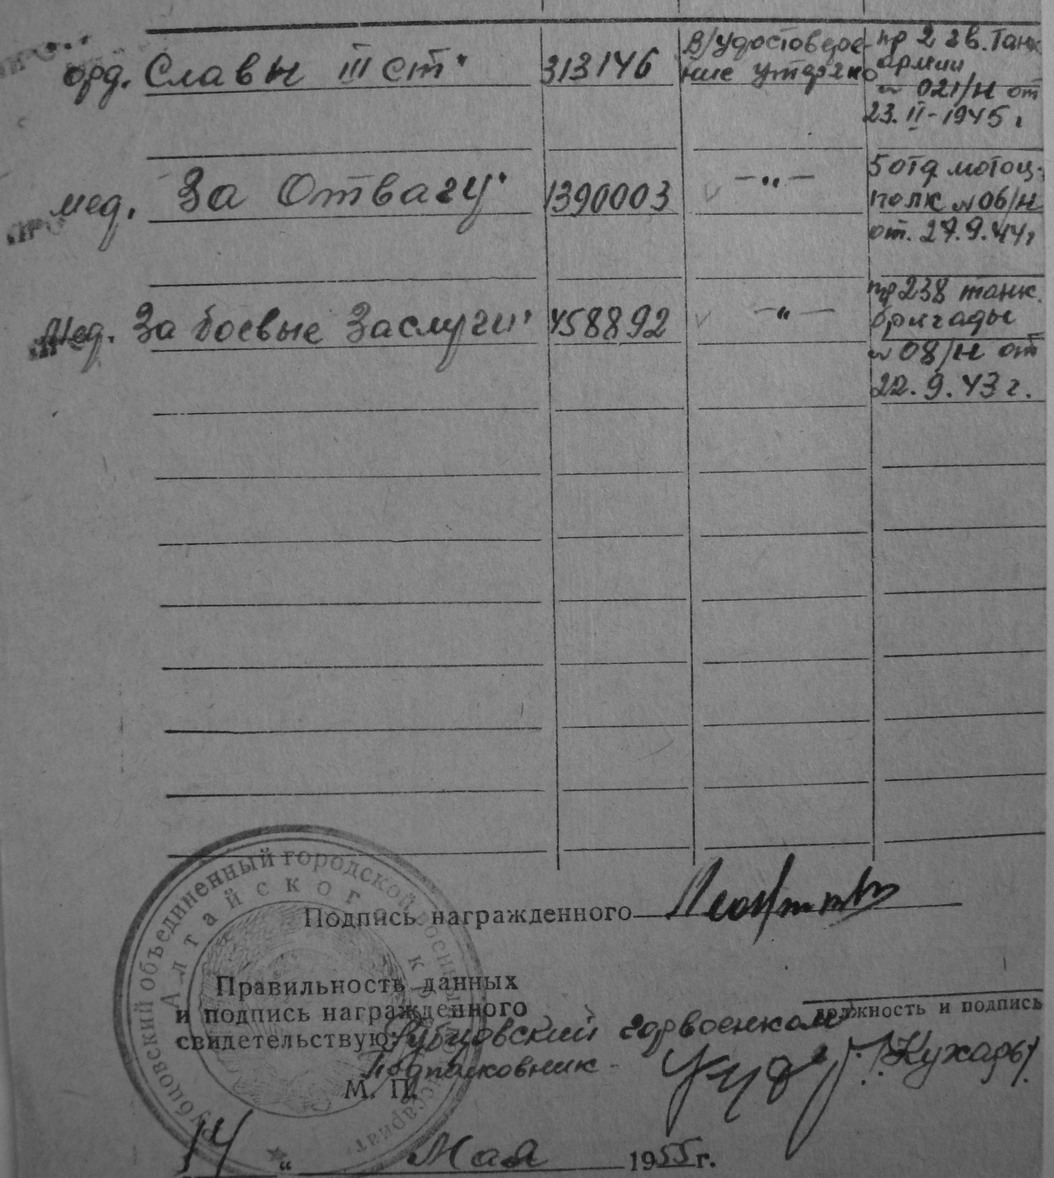 орд. Славы III ст" 313146 В/удостовере- пр 2 гв. Танк
ние утеряно армии
№ 021/н от
23. II-1945 г
мед. За Отвагу" 1390003 —"— 5 отд мотоц.
полк №06/н
от. 27.9.44г
Мед. За боевые Заслуги" 458892 —"— пр 238 танк.
бригады
№ 08/н от
22.9.43 г.
Рубцовский объединенный городской военный комиссариат
Алтайского края
Подпись награжденного
Правильность данных
и подпись награжденного
должность и подпись
свидетельствую: Рубцовский горвоенком
Подполковник
М. П.
14 " Мая 1955 г.